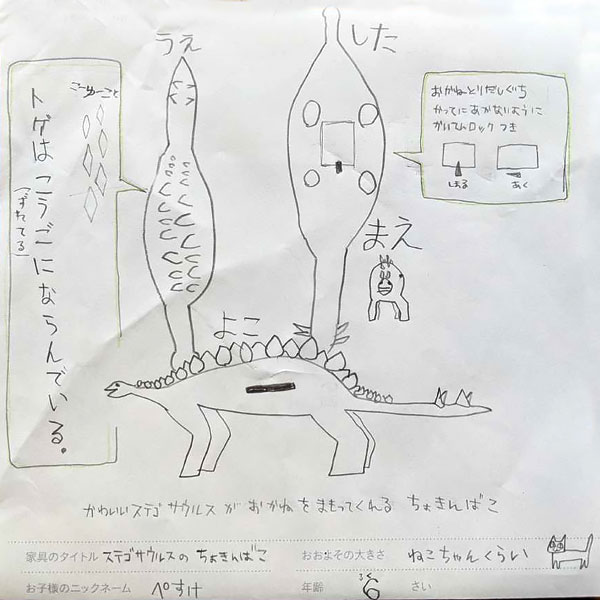 うえ
した
こーゆーこと
トゲはこうごにならんでいる。
(ずれてる)
おかねとりだしぐち
かってにあかないように
かいてんロックつき
しまる
あく
まえ
よこ
かわいいステゴサウルスがおかねをまもってくれるちょきんばこ
家具のタイトル ステゴサウルスのちょきんばこ
おおよその大きさ ねこちゃんくらい
お子様のニックネーム ぺすけ
年齢 6 さい